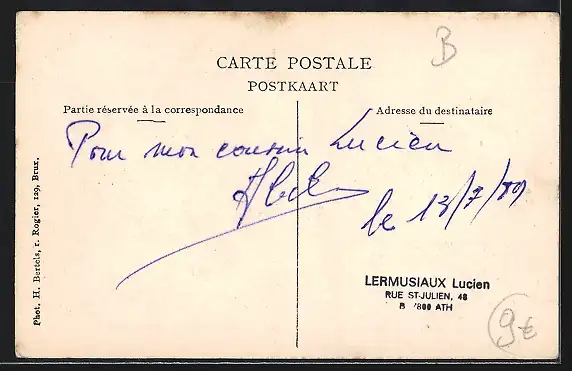 B
CARTE POSTALE
POSTKAART
Partie réservée à la correspondance
Adresse du destinataire
Pour mon cousin Lucien
le 13/7/89
LERMUSIAUX Lucien
RUE ST-JULIEN, 48
B 7800 ATH
9€
Phot. H. Bertels, r. Rogier, 129, Brux.